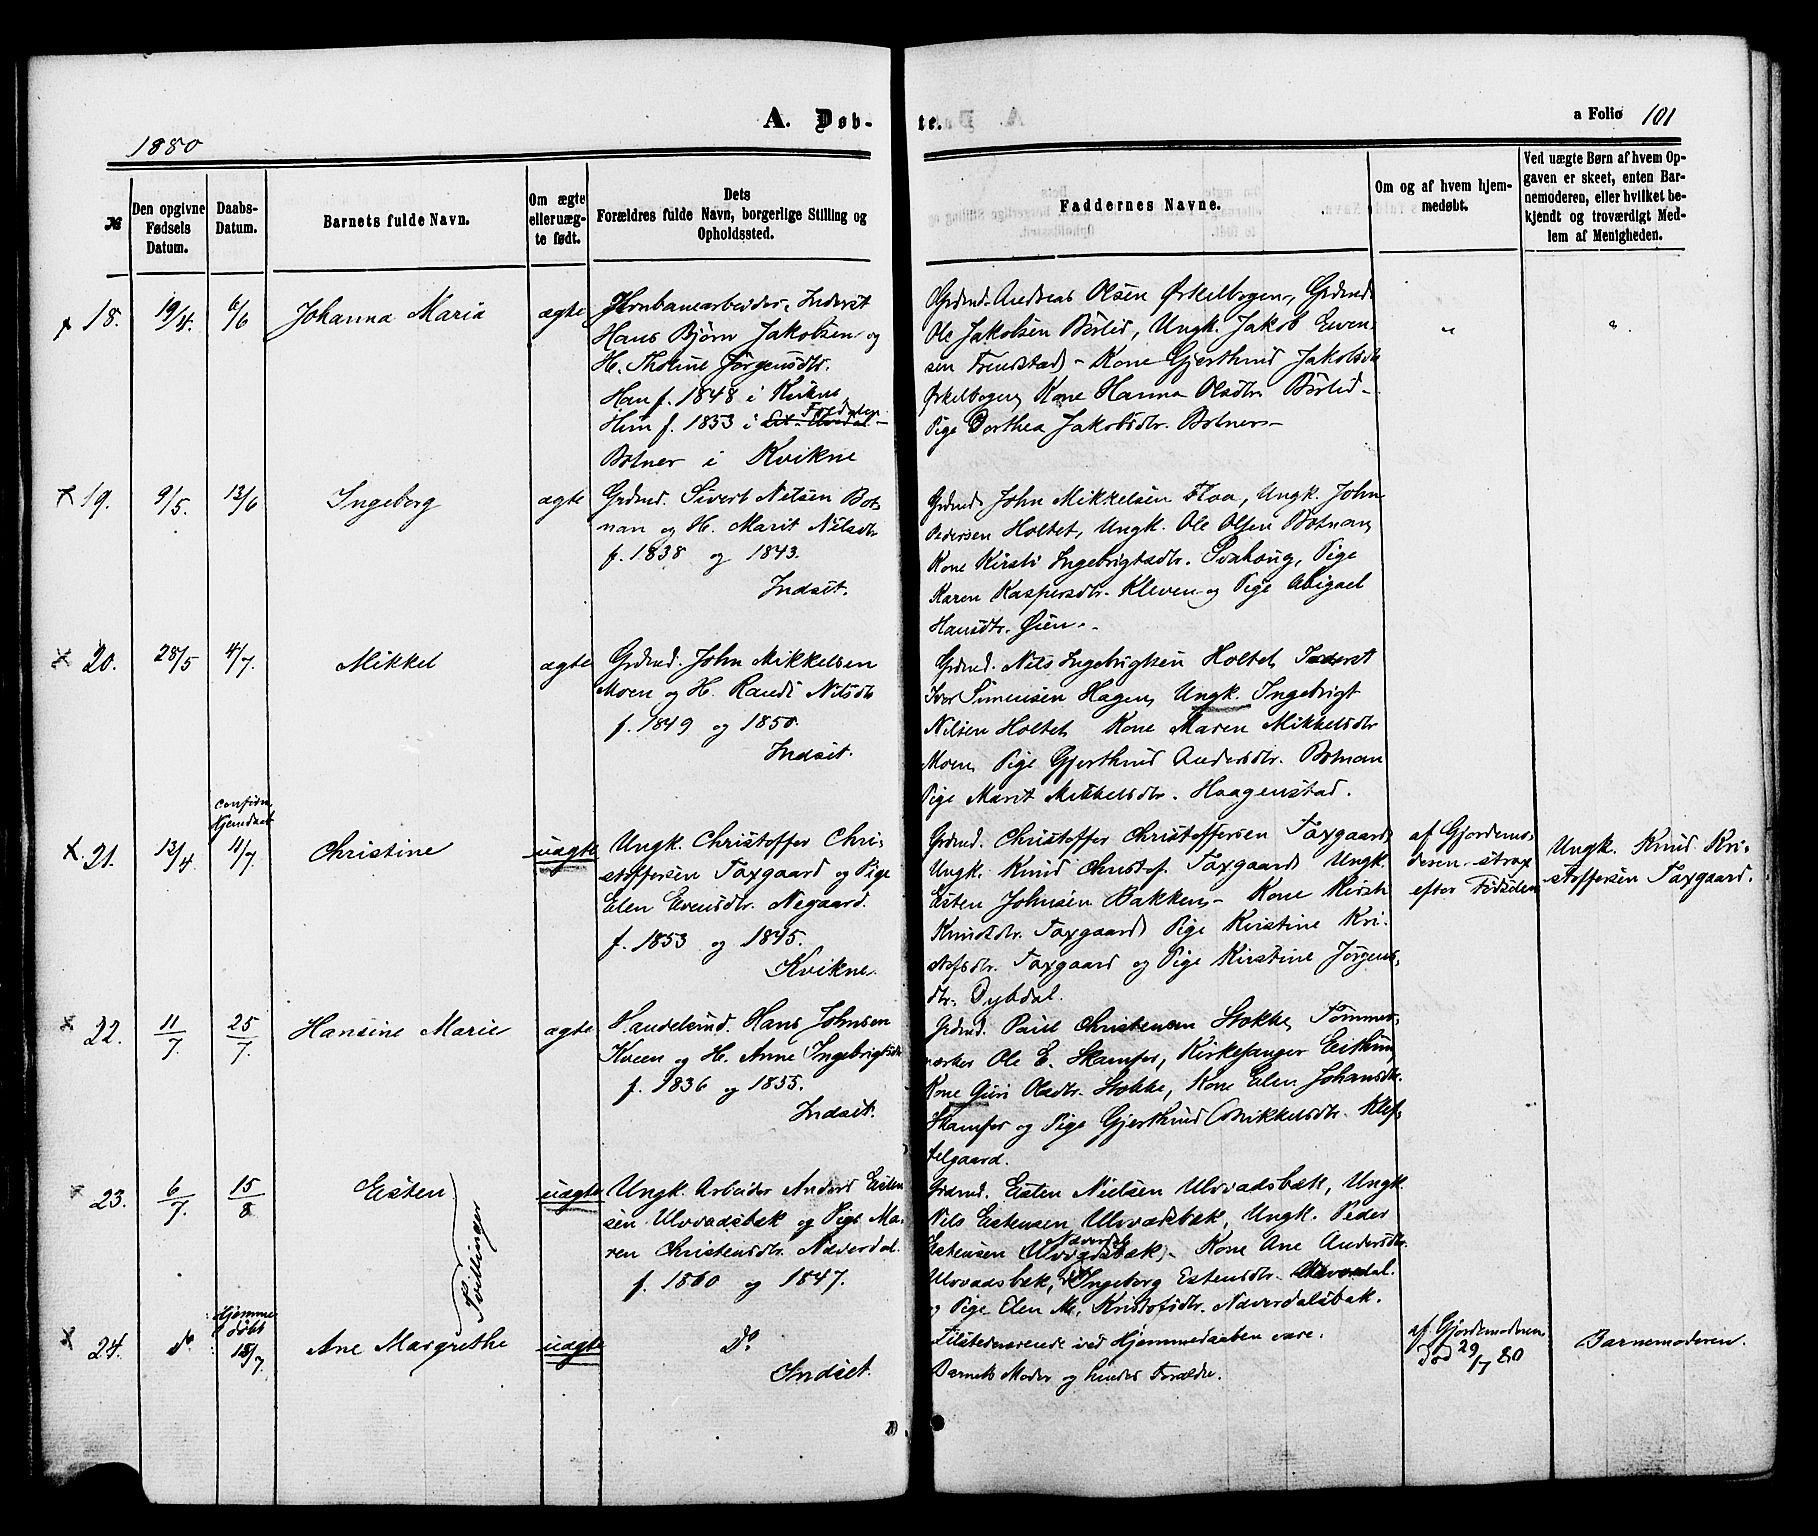 1880
A. Døb-
te.
a Folio 101
№
Den opgivne Fødsels Datum.
Daabs-Datum.
Barnets fulde Navn.
Om ægte eller uæg-te født.
Dets Forældres fulde Navn, borgerlige Stilling og Opholdssted.
Faddernes Navne.
Om og af hvem hjem-medøbt.
Ved uægte Børn af hvem Op-gaven er skeet, enten Bar-nemoderen, eller hvilket be-kjendt og troværdigt Med-lem af Menigheden.
18.
19/4.
6/6
Johanna Maria
ægte
Jernbanearbeider, Inderst
Hans Bjørn Jakobsen og
H. Tholine Jørgensdtr.
Han f. 1848 i
Hun f. 1853 i
Botner i Kvikne
Grdmd. Andreas Olsen Ørkelbogen, Grdmd.
Ole Jakobsen Børlid, Ungk. Jakob Even-
sen Frendstad - Kone Gjerthrud Jakobsdtr
Ørkelbogen, Kone Hanna Olsdtr Børlid -
Pige Dorthea Jakobsdtr. Botner -
"
"
19.
9/5.
13/6
Ingeborg
ægte
Grdmd. Sivert Nilsen Bot-
nan og H. Marit Nilsdtr
f. 1838 og 1843.
Indset.
Grdmd John Mikkelsen Floa, Ungk. John
Pedersen Holtet, Ungk. Ole Olsen Botnan,
Kone Kirsti Ingebrigtsdtr. Svahaug, Pige
Karen Kaspersdtr. Kleven og Pige Abigael
Hansdtr. Øien. -
20.
28/5
4/7.
Mikkel
ægte
Grdmd. John Mikkelsen
Moen og H. Randi Nilsdtr
f. 1849 og 1850.
Indset.
Grdmd. Nils Ingebrigtsen Holtet, Inderst
Iver Simensen Hagen, Ungk. Ingebrigt
Nilsen Holtet, Kone Maren Mikkelsdtr
Moen, Pige Gjerthrud Andersdtr. Botnan
Pige Marit Mikkelsdtr. Haagenstad.
21.
13/4
confirm.
Hjemdaab
4/7.
Christine
uægte
Ungk. Christoffer Chri-
stoffersen Faxgaard og Pige
Elen Evensdtr. Negaard.
f. 1853 og 1845.
Kvikne.
Grdmd. Christoffer Christoffersen Faxgaard,
Ungk. Knud Christof. Faxgaard, Ungk.
Esten Johnsen Bakken, - Kone Kirsti
Knudsdtr. Faxgaard, Pige Kirstine Kri-
stofsdtr. Faxgaard og Pige Kirstine Jørgens-
dtr. Dybdal.
af Gjordemo-
deren strax
efter Fødselen
Ungk. Knud Kri-
stoffersen Faxgaard.
22.
11/7.
25/7.
Hansine Marie
ægte
Handelsmd. Hans Johnsen
Kveen og H. Anne Ingebrigtsdtr
f. 1836 og 1855.
Indset.
Grdmd. Paul Christensen Stokke, Tømmer-
mærker Ole E. Skamfer, Kirkesanger Eithun,
Kone Guri Olsdtr. Stokke, Kone Elen Johansdtr.
Skamfer og Pige Gjerthrud Mikkelsdtr. Klef-
telgaard.
23.
6/7.
15/8
Eisten
Tvillinger
uægte
Ungk. Arbeider Anders Esten-
sen Ulvvadsbæk og Pige Ma-
ren Christensdtr. Næverdal.
f. 1860 og 1847.
Grdmd. Eisten Nielsen Ulvvadsbæk, Ungk.
Nils Estensen Ulvvadsbæk, Ungk. Peder
Estensen Ulvvadsbæk, - Kone Ane Andersdtr.
Ulvvadsbæk, Ingeborg Estensdtr.
og Pige Elen M. Kristofsdtr. Næverdalsbak.
24.
do
Hjemme
døbt
15/7.
Ane Margrethe
uægte
do.
Indset.
Tilstedeværende ved Hjemmedaaben vare.
Barnets Moder og hendes Forældre.
af Gjordemoderen.
Død 29/7 80
Barnemoderen.